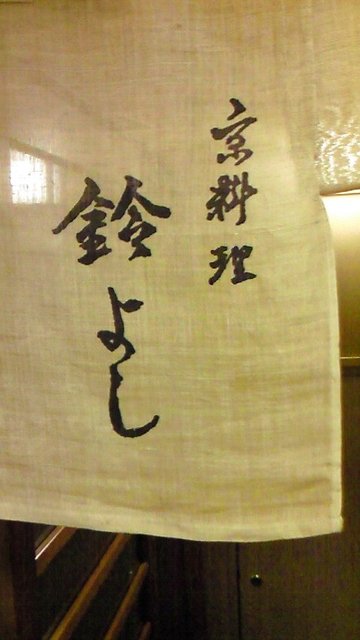 京料理
鈴よし